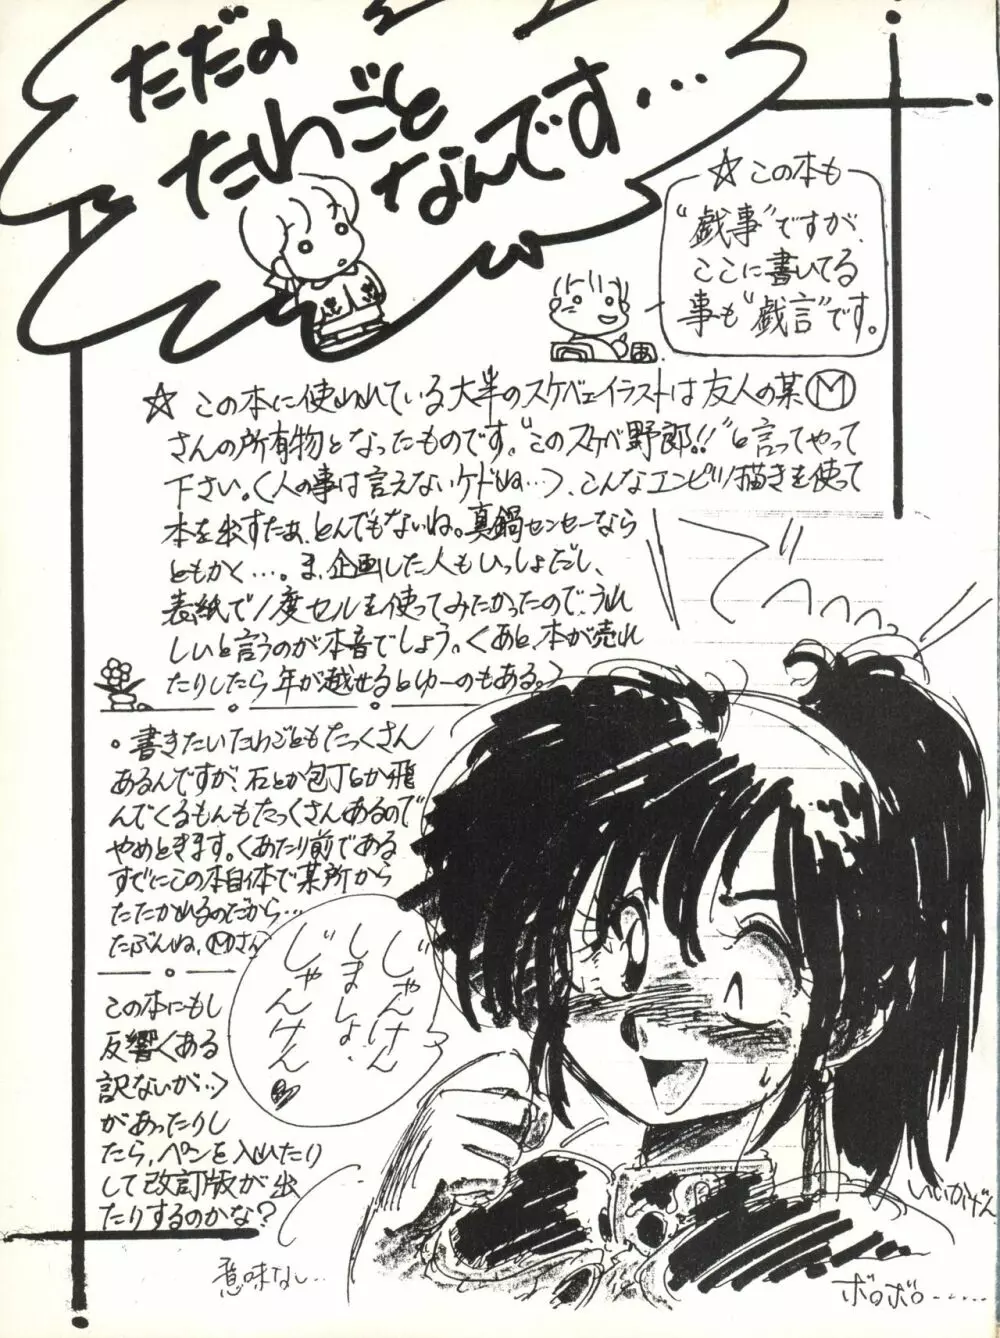 ただの
たわごと
なんです…
☆この本も
"戯事"ですが、
ここに書いてる
事も"戯言"です。
あ
☆ この本に使われている大半のスケベェイラストは友人の某Ⓜ
さんの所有物となったものです。"このスケベ野郎!!"と言ってやって
下さい。<人の事は言えないケドね…>、こんなエンピツ描きを使って
本を出すたぁ、とんでもないね。真鍋センセーなら
ともかく…。ま、企画した人もいっしょだし、
表紙で1度セルを使ってみたかったので、うれ
しいと言うのが本音でしょう。<あと、本が売れ
たりしたら年が越せるとゆーのもある。>
・書きたいたわごともたっくさん
あるんですが、石とか包丁とか飛
んでくるもんもたっくさんあるので
やめときます。<あたり前である
すぐにこの本自体で某所から
たたかれるのだから…
たぶんね、Ⓜさん
この本にもし
反響<ある
訳ないが…>
があったりし
たら,ペンを入れたり
して改訂版が出
たりするのかな?
じゃんけん
しましょ、
じゃんけん
♥
いいかげん
意味なし…
ボロボロ……